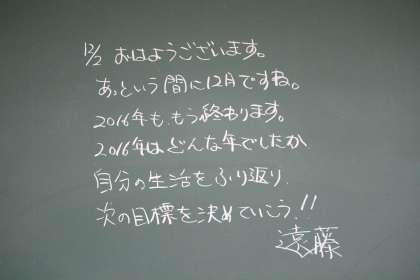 12/2 おはようございます。
あっという間に12月ですね。
2016年も、もう終わります。
2016年はどんな年でしたか
自分の生活をふり返り、
次の目標を決めていこう!!
遠藤